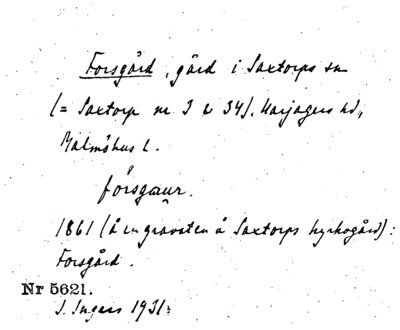 Forsgård, gård i Saxtorps sn
(= Saxtorp nr 3 & 34). Harjagers hd,
Malmöhus l.
fǫrsgaur.
1861 (å en gravsten å Saxtorps kyrkogård):
Forsgård.
Nr 5621.
I. Ingers 1931.